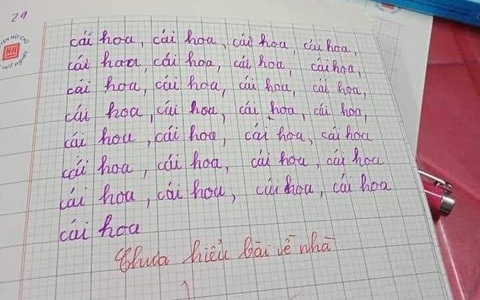 29
cái hoa, cái hoa, cái hoa, cái hoa,
cái hoa, cái hoa, cái hoa, cái hoa,
cái hoa, cái hoa, cái hoa, cái hoa,
cái hoa, cái hoa, cái hoa, cái hoa,
cái hoa, cái hoa, cái hoa, cái hoa
cái hoa, cái hoa, cái hoa, cái hoa
cái hoa, cái hoa, cái hoa, cái hoa
cái hoa
Chưa hiểu bài về nhà